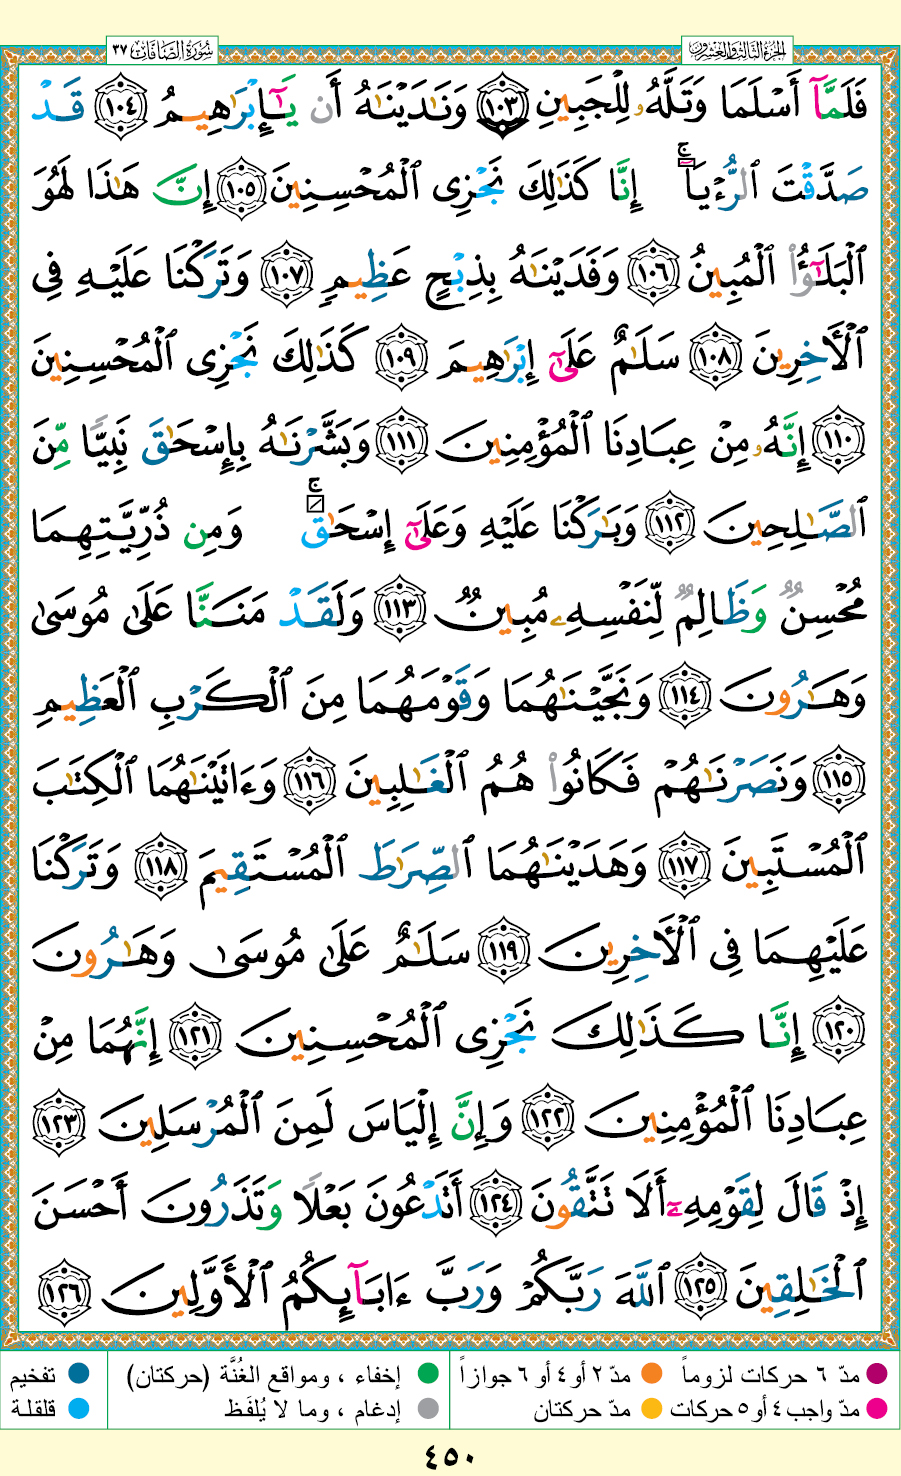 سُورَةُ الصَّافَّاتِ ٣٧
الجُزءُ الثَّالِثُ وَالعِشْرُونَ
فَلَمَّآ أَسْلَمَا وَتَلَّهُۥ لِلْجَبِينِ ١٠٣ وَنَٰدَيْنَٰهُ أَن يَٰٓإِبْرَٰهِيمُ ١٠٤ قَدْ
صَدَّقْتَ ٱلرُّءْيَآۚ إِنَّا كَذَٰلِكَ نَجْزِى ٱلْمُحْسِنِينَ ١٠٥ إِنَّ هَٰذَا لَهُوَ
ٱلْبَلَٰٓؤُا۟ ٱلْمُبِينُ ١٠٦ وَفَدَيْنَٰهُ بِذِبْحٍ عَظِيمٍ ١٠٧ وَتَرَكْنَا عَلَيْهِ فِى
ٱلْأَخِرِينَ ١٠٨ سَلَٰمٌ عَلَىٰٓ إِبْرَٰهِيمَ ١٠٩ كَذَٰلِكَ نَجْزِى ٱلْمُحْسِنِينَ
١١٠ إِنَّهُۥ مِنْ عِبَادِنَا ٱلْمُؤْمِنِينَ ١١١ وَبَشَّرْنَٰهُ بِإِسْحَٰقَ نَبِيًّا مِّنَ
ٱلصَّٰلِحِينَ ١١٢ وَبَٰرَكْنَا عَلَيْهِ وَعَلَىٰٓ إِسْحَٰقَۚ وَمِن ذُرِّيَّتِهِمَا
مُحْسِنٌ وَظَالِمٌ لِّنَفْسِهِۦ مُبِينٌ ١١٣ وَلَقَدْ مَنَنَّا عَلَىٰ مُوسَىٰ
وَهَٰرُونَ ١١٤ وَنَجَّيْنَٰهُمَا وَقَوْمَهُمَا مِنَ ٱلْكَرْبِ ٱلْعَظِيمِ
١١٥ وَنَصَرْنَٰهُمْ فَكَانُوا۟ هُمُ ٱلْغَٰلِبِينَ ١١٦ وَءَاتَيْنَٰهُمَا ٱلْكِتَٰبَ
ٱلْمُسْتَبِينَ ١١٧ وَهَدَيْنَٰهُمَا ٱلصِّرَٰطَ ٱلْمُسْتَقِيمَ ١١٨ وَتَرَكْنَا
عَلَيْهِمَا فِى ٱلْأَخِرِينَ ١١٩ سَلَٰمٌ عَلَىٰ مُوسَىٰ وَهَٰرُونَ
١٢٠ إِنَّا كَذَٰلِكَ نَجْزِى ٱلْمُحْسِنِينَ ١٢١ إِنَّهُمَا مِنْ
عِبَادِنَا ٱلْمُؤْمِنِينَ ١٢٢ وَإِنَّ إِلْيَاسَ لَمِنَ ٱلْمُرْسَلِينَ ١٢٣
إِذْ قَالَ لِقَوْمِهِۦٓ أَلَا تَتَّقُونَ ١٢٤ أَتَدْعُونَ بَعْلًا وَتَذَرُونَ أَحْسَنَ
ٱلْخَٰلِقِينَ ١٢٥ ٱللَّهَ رَبَّكُمْ وَرَبَّ ءَابَآئِكُمُ ٱلْأَوَّلِينَ ١٢٦
مدّ ٦ حركات لزوماً مدّ ٢ أو ٤ أو ٦ جوازاً إخفاء ، ومواقع الغُنَّة (حركتان) تفخيم
مدّ واجب ٤ أو ٥ حركات مدّ حركتان إدغام ، وما لا يُلفَظ قلقلة
٤٥٠